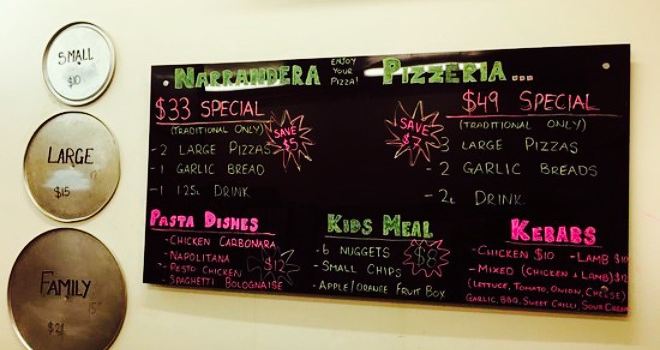 SMALL
$10
LARGE
$15
FAMILY
$21
NARRANDERA ENJOY YOUR PIZZA! PIZZERIA...
$33 SPECIAL
(TRADITIONAL ONLY)
SAVE $5
- 2 LARGE PIZZAS
- 1 GARLIC BREAD
- 1 1.25L DRINK
$49 SPECIAL
(TRADITIONAL ONLY)
SAVE $7
- 3 LARGE PIZZAS
- 2 GARLIC BREADS
- 2L DRINK
PASTA DISHES
- CHICKEN CARBONARA
- NAPOLITANA
- PESTO CHICKEN
- SPAGHETTI BOLOGNAISE
$12
KIDS MEAL
- 6 NUGGETS
- SMALL CHIPS
- APPLE/ORANGE FRUIT BOX
$8
KEBABS
- CHICKEN $10 - LAMB $10
- MIXED (CHICKEN & LAMB) $12
(LETTUCE, TOMATO, ONION, CHEESE)
GARLIC, BBQ, SWEET CHILLI, SOUR CREAM